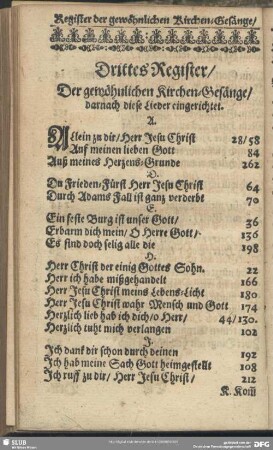 Register der gewöhnlichen Kirchen-Gesänge/
Drittes Register/
Der gewöhnlichen Kirchen-Gesänge/
darnach diese Lieder eingerichtet.
A.
Allein zu dir/Herr Jesu Christ 28/58
Auf meinen lieben Gott 84
Auß meines Herzens-Grunde 262
D.
Du Frieden-Fürst Herr Jesu Christ 64
Durch Adams Fall ist ganz verderbt 70
E.
Ein feste Burg ist unser Gott/ 36
Erbarm dich mein/O Herre Gott/- 136
Es sind doch selig alle die 198
H.
Herr Christ der einig Gottes Sohn. 22
Herr ich habe mißgehandelt 166
Herr Jesu Christ meins Lebens-Licht 180
Herr Jesu Christ wahr Mensch und Gott 174
Herzlich lieb hab ich dich/o Herr/ 44/130.
Herzlich tuht mich verlangen 102
J.
Ich dank dir schon durch deinen 192
Ich hab meine Sach Gott heimgestellt 108
Ich ruff zu dir/ Herr Jesu Christ/ 212
K. Kom̃
SLUB